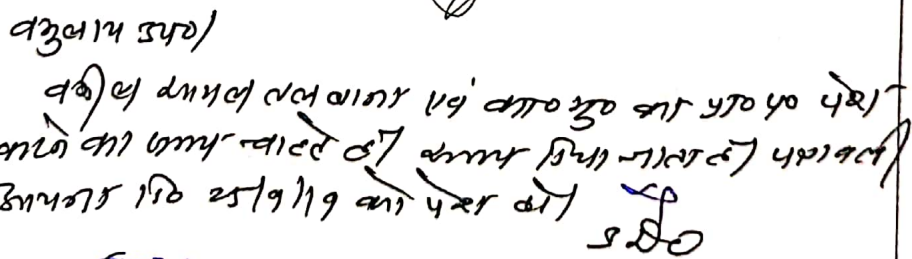 वकुलाय उप०।
वकील सायल तलवाना एवं का० मु० का प्रा० प० पेश
करने का समय चाहते है। समय दिया जाता है। पत्रावली
आयन्दा दि० 25/9/19 को पेश हो।